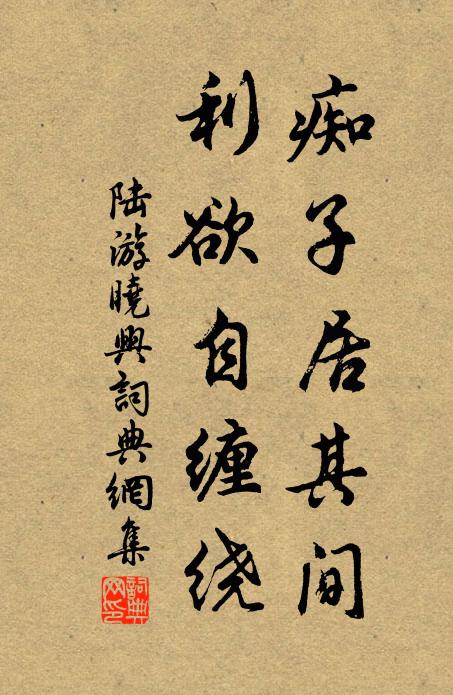 痴子居其间
利欲自缠绕
陆游曉興詞典網集
詞典網印